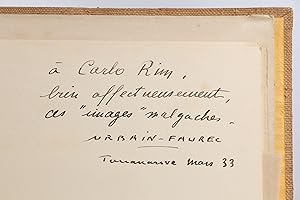 à Carlo Rim,
bien affectueusement,
ces "images" malgaches.
URBAIN-FAUREC
Tananarive mars 33